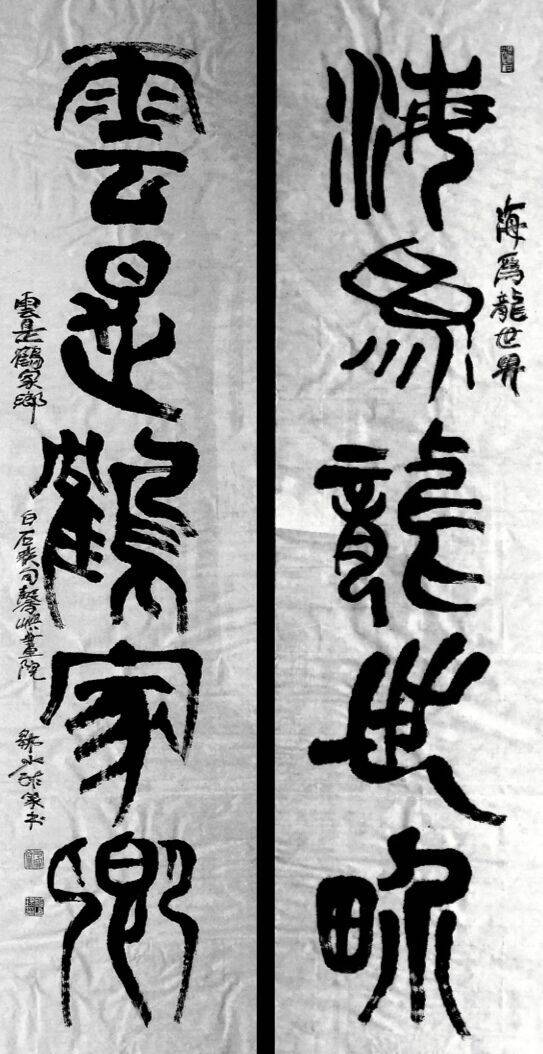 海為龍世界
海為龍世界
雲是鶴家鄉
雲是鶴家鄉
白石 句 畫院